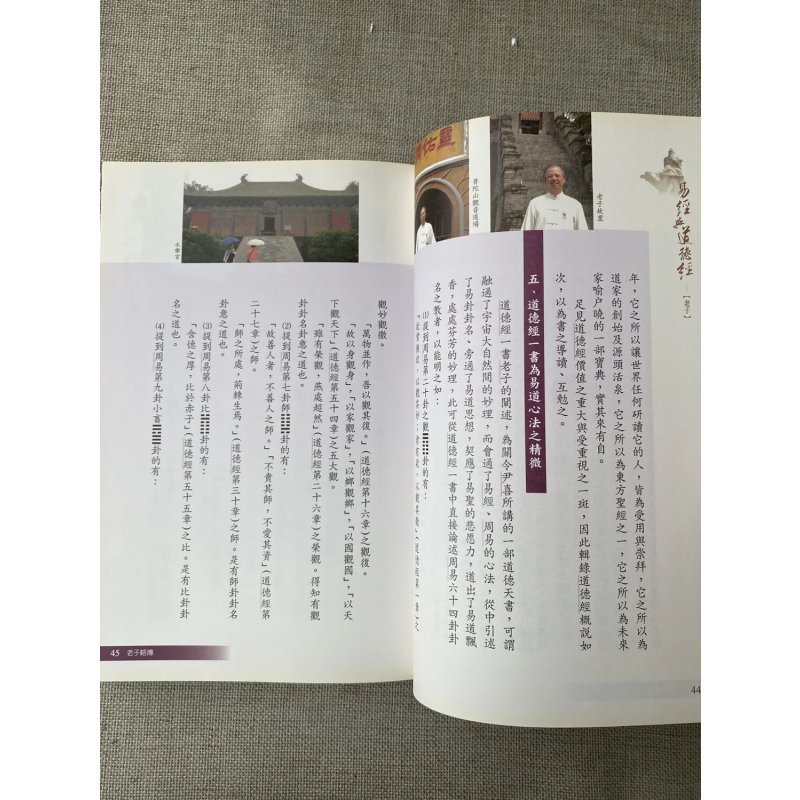 易經與道德經
【老子】
老子故里
普陀山觀音道場
年,它之所以讓世界任何研讀它的人,皆為受用與崇拜,它之所以為
道家的創始及源頭活泉,它之所以為東方聖經之一,它之所以為未來
家喻户曉的一部寶典,實其來有自。
足見道德經價值之重大與受重視之一斑,因此輯錄道德經概說如
次,以為書之導讀、互勉之。
五、道德經一書為易道心法之精微
道德經一書老子的闡述,為關令尹喜所講的一部道德天書,可謂
融通了宇宙大自然間的妙理,而會通了易經、周易的心法,從中引述
了易卦卦名、旁通了易道思想,契應了易聖的悲愿力,道出了易道飄
香,處處芬芳的妙理,此可從道德經一書中直接論述周易六十四卦卦
名之教者,以能明之如:
(1) 提到周易第二十卦之觀䷓卦的有:
44
永樂宮
觀妙觀徼。
「萬物並作,吾以觀其復。」(道德經第十六章)之觀復。
「故以身觀身」,「以家觀家」,「以鄉觀鄉」,「以國觀國」,「以天
下觀天下」(道德經第五十四章)之五大觀。
「雖有榮觀,燕處超然」(道德經第二十六章)之榮觀。得知有觀
卦卦名卦意之道也。
(2) 提到周易第七卦師䷆卦的有:
「故善人者,不善人之師。」「不貴其師,不愛其資」(道德經第
二十七章)之師。
「師之所處,荊棘生焉。」(道德經第三十章)之師。是有師卦卦名
卦意之道也。
(3) 提到周易第八卦比䷇卦的有:
「含德之厚,比於赤子」(道德經第五十五章)之比。是有比卦卦
名之道也。
(4) 提到周易第九卦小畜䷈卦的有:
45 老子略傳